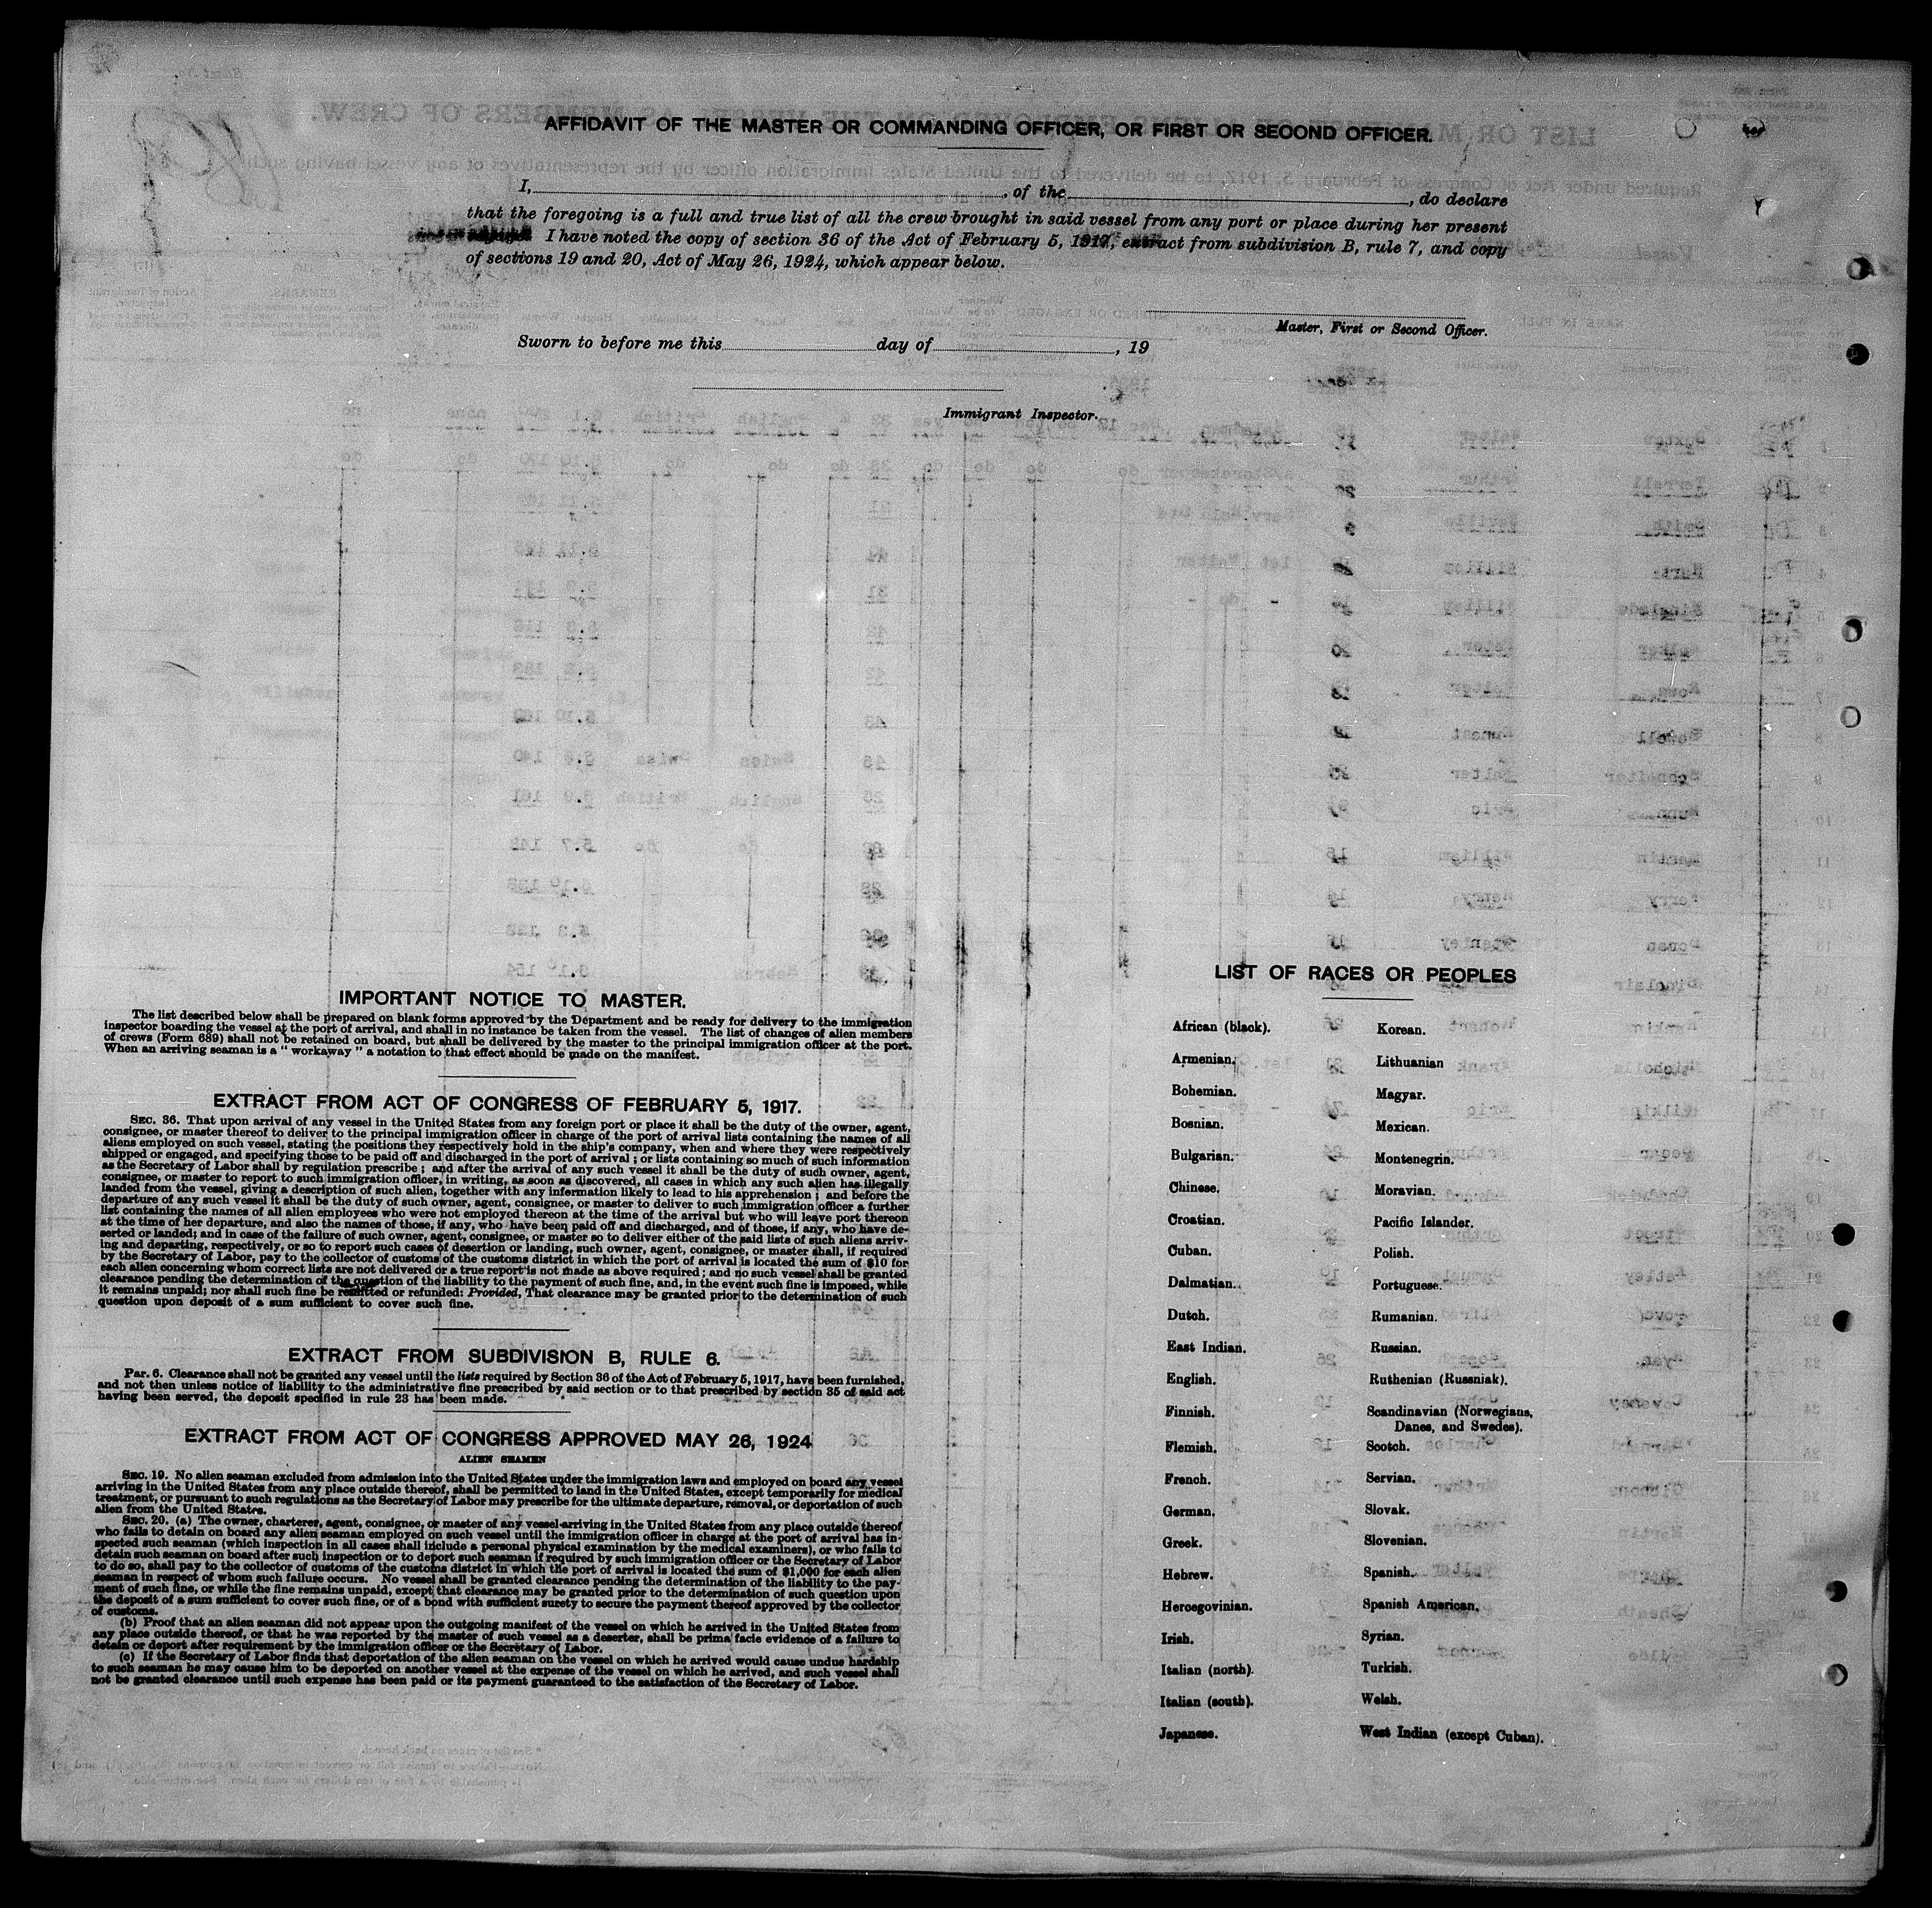 AFFIDAVIT OF THE MASTER OR COMMANDING OFFICER, OR FIRST OR SECOND OFFICER.
I, , of the , do declare
that the foregoing is a full and true list of all the crew brought in said vessel from any port or place during her present
I have noted the copy of section 36 of the Act of February 5, 1917, extract from subdivision B, rule 7, and copy
of sections 19 and 20, Act of May 26, 1924, which appear below.
Master, First or Second Officer.
Sworn to before me this day of , 19
Immigrant Inspector.
IMPORTANT NOTICE TO MASTER.
The list described below shall be prepared on blank forms approved by the Department and be ready for delivery to the immigration
inspector boarding the vessel at the port of arrival, and shall in no instance be taken from the vessel. The list of changes of alien members
of crews (Form 689) shall not be retained on board, but shall be delivered by the master to the principal immigration officer at the port.
When an arriving seaman is a "workaway" a notation to that effect should be made on the manifest.
EXTRACT FROM ACT OF CONGRESS OF FEBRUARY 5, 1917.
SEC. 36. That upon arrival of any vessel in the United States from any foreign port or place it shall be the duty of the owner, agent,
consignee, or master thereof to deliver to the principal immigration officer in charge of the port of arrival lists containing the names of all
aliens employed on such vessel, stating the positions they respectively hold in the ship's company, when and where they were respectively
shipped or engaged, and specifying those to be paid off and discharged in the port of arrival; or lists containing so much of such information
as the Secretary of Labor shall by regulation prescribe; and after the arrival of any such vessel it shall be the duty of such owner, agent,
consignee, or master to report to such immigration officer, in writing, as soon as discovered, all cases in which any such alien has illegally
landed from the vessel, giving a description of such alien, together with any information likely to lead to his apprehension; and before the
departure of any such vessel it shall be the duty of such owner, agent, consignee, or master to deliver to such immigration officer a further
list containing the names of all alien employees who were not employed thereon at the time of the arrival but who will leave port thereon
at the time of her departure, and also the names of those, if any, who have been paid off and discharged, and of those, if any, who have de-
serted or landed; and in case of the failure of such owner, agent, consignee, or master so to deliver either of the said lists of such aliens arriv-
ing and departing, respectively, or so to report such cases of desertion or landing, such owner, agent, consignee, or master shall, if required
by the Secretary of Labor, pay to the collector of customs of the customs district in which the port of arrival is located the sum of $10 for
each alien concerning whom correct lists are not delivered or a true report is not made as above required; and no such vessel shall be granted
clearance pending the determination of the question of the liability to the payment of such fine, and, in the event such fine is imposed, while
it remains unpaid; nor shall such fine be remitted or refunded: Provided, That clearance may be granted prior to the determination of such
question upon deposit of a sum sufficient to cover such fine.
EXTRACT FROM SUBDIVISION B, RULE 6.
Par. 6. Clearance shall not be granted any vessel until the lists required by Section 36 of the Act of February 5, 1917, have been furnished,
and not then unless notice of liability to the administrative fine prescribed by said section or to that prescribed by section 35 of said act
having been served, the deposit specified in rule 23 has been made.
EXTRACT FROM ACT OF CONGRESS APPROVED MAY 26, 1924
ALIEN SEAMEN
SEC. 19. No alien seaman excluded from admission into the United States under the immigration laws and employed on board any vessel
arriving in the United States from any place outside thereof, shall be permitted to land in the United States, except temporarily for medical
treatment, or pursuant to such regulations as the Secretary of Labor may prescribe for the ultimate departure, removal, or deportation of such
alien from the United States.
SEC. 20. (a) The owner, charterer, agent, consignee, or master of any vessel arriving in the United States from any place outside thereof
who fails to detain on board any alien seaman employed on such vessel until the immigration officer in charge at the port of arrival has in-
spected such seaman (which inspection in all cases shall include a personal physical examination by the medical examiners), or who fails to
detain such seaman on board after such inspection or to deport such seaman if required by such immigration officer or the Secretary of Labor
to do so, shall pay to the collector of customs of the customs district in which the port of arrival is located the sum of $1,000 for each alien
seaman in respect of whom such failure occurs. No vessel shall be granted clearance pending the determination of the liability to the pay-
ment of such fine, or while the fine remains unpaid, except that clearance may be granted prior to the determination of such question upon
the deposit of a sum sufficient to cover such fine, or of a bond with sufficient surety to secure the payment thereof approved by the collector
of customs.
(b) Proof that an alien seaman did not appear upon the outgoing manifest of the vessel on which he arrived in the United States from
any place outside thereof, or that he was reported by the master of such vessel as a deserter, shall be prima facie evidence of a failure to
detain or deport after requirement by the immigration officer or the Secretary of Labor.
(c) If the Secretary of Labor finds that deportation of the alien seaman on the vessel on which he arrived would cause undue hardship
to such seaman he may cause him to be deported on another vessel at the expense of the vessel on which he arrived, and such vessel shall
not be granted clearance until such expense has been paid or its payment guaranteed to the satisfaction of the Secretary of Labor.
LIST OF RACES OR PEOPLES
African (black).
Armenian.
Bohemian.
Bosnian.
Bulgarian.
Chinese.
Croatian.
Cuban.
Dalmatian.
Dutch.
East Indian.
English.
Finnish.
Flemish.
French.
German.
Greek.
Hebrew.
Hercegovinian.
Irish.
Italian (north).
Italian (south).
Japanese.
Korean.
Lithuanian
Magyar.
Mexican.
Montenegrin.
Moravian.
Pacific Islander.
Polish.
Portuguese.
Rumanian.
Russian.
Ruthenian (Russniak).
Scandinavian (Norwegians,
Danes, and Swedes).
Scotch.
Servian.
Slovak.
Slovenian.
Spanish.
Spanish American.
Syrian.
Turkish.
Welsh.
West Indian (except Cuban).